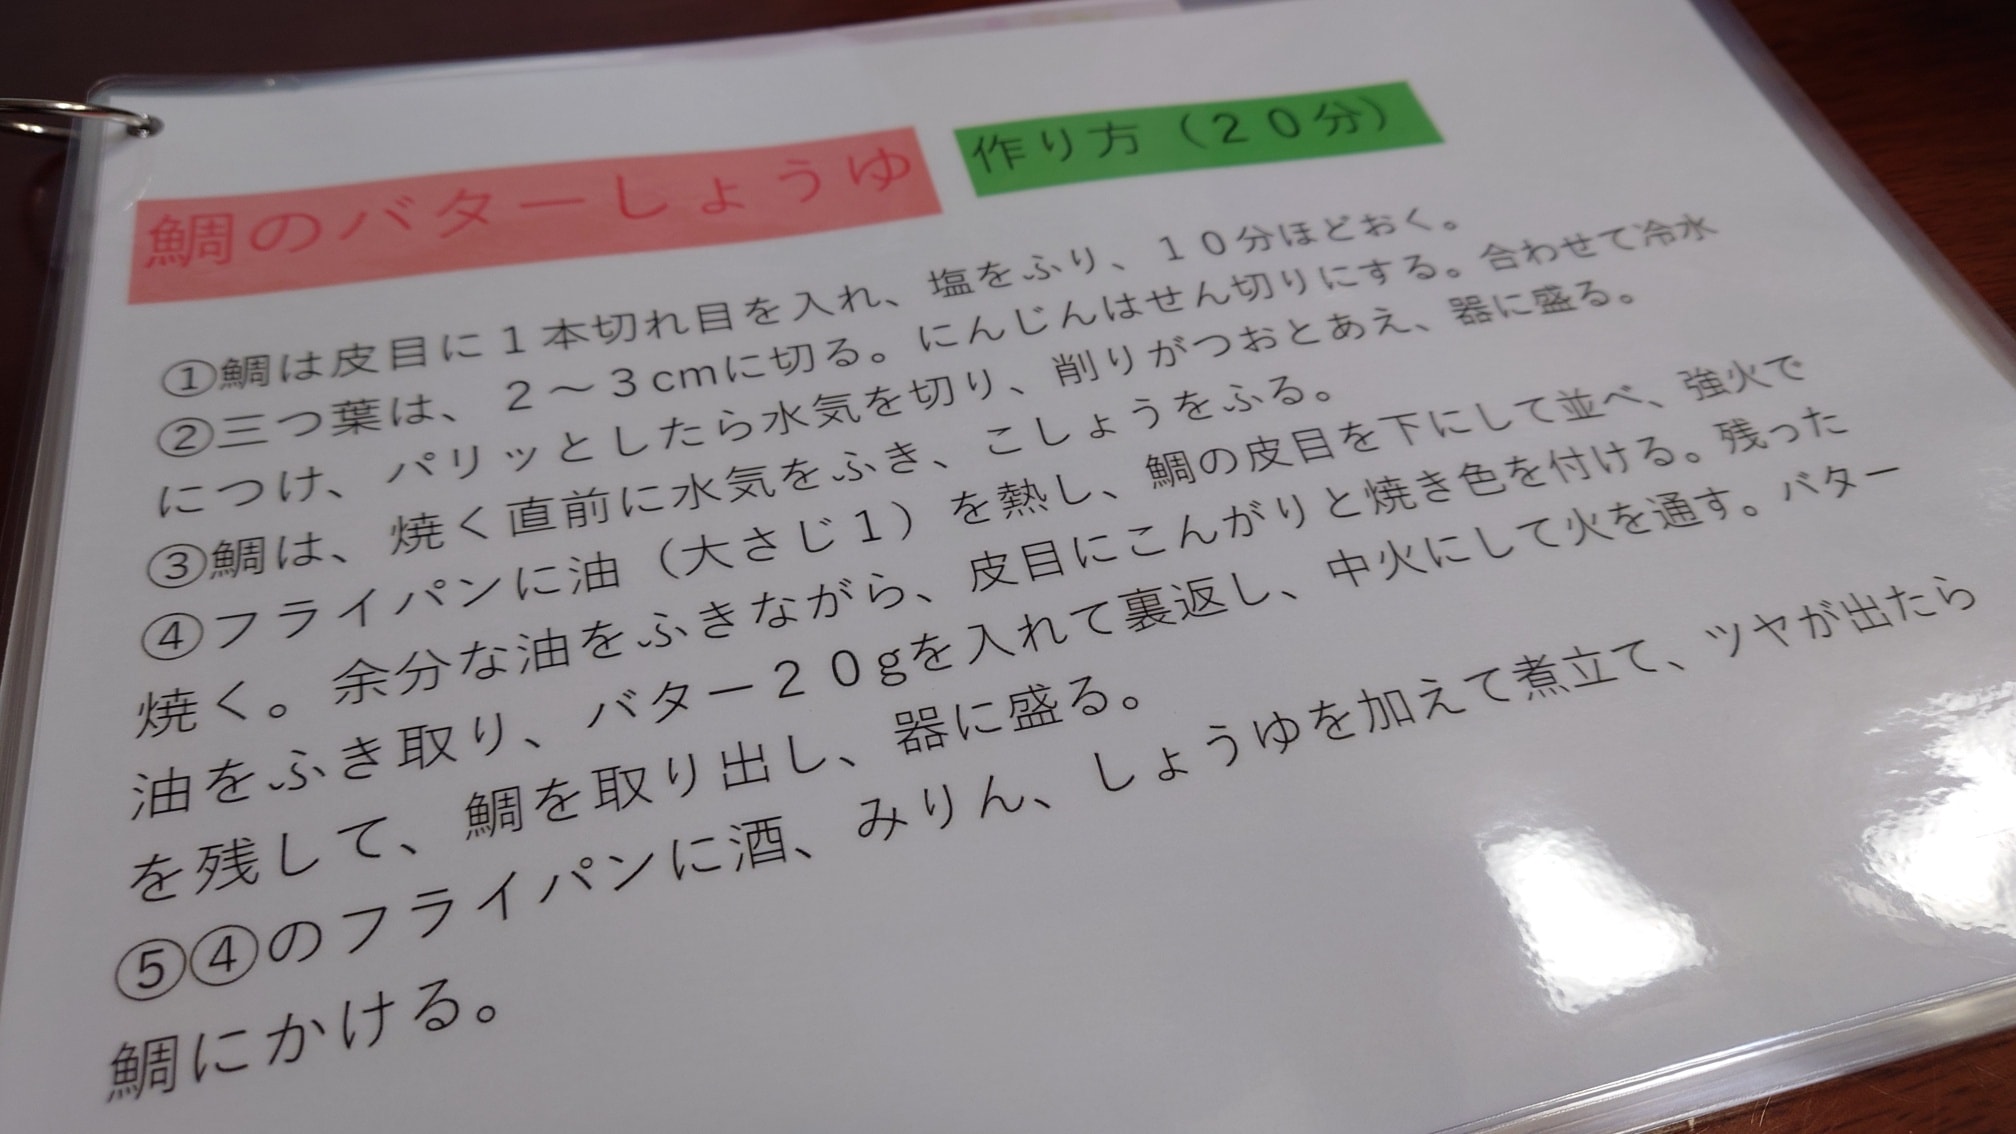 鯛のバターしょうゆ 作り方（２０分）
①鯛は皮目に１本切れ目を入れ、塩をふり、１０分ほどおく。
②三つ葉は、２～３cmに切る。にんじんはせん切りにする。合わせて冷水
につけ、パリッとしたら水気を切り、削りがつおとあえ、器に盛る。
③鯛は、焼く直前に水気をふき、こしょうをふる。
④フライパンに油（大さじ１）を熱し、鯛の皮目を下にして並べ、強火で
焼く。余分な油をふきながら、皮目にこんがりと焼き色を付ける。残った
油をふき取り、バター２０gを入れて裏返し、中火にして火を通す。バター
を残して、鯛を取り出し、器に盛る。
⑤④のフライパンに酒、みりん、しょうゆを加えて煮立て、ツヤが出たら
鯛にかける。